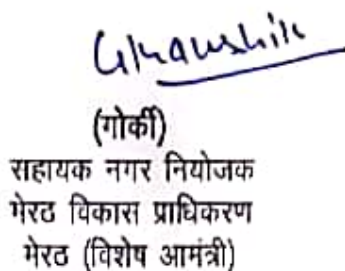 (गोर्की)
सहायक नगर नियोजक
मेरठ विकास प्राधिकरण
मेरठ (विशेष आमंत्री)